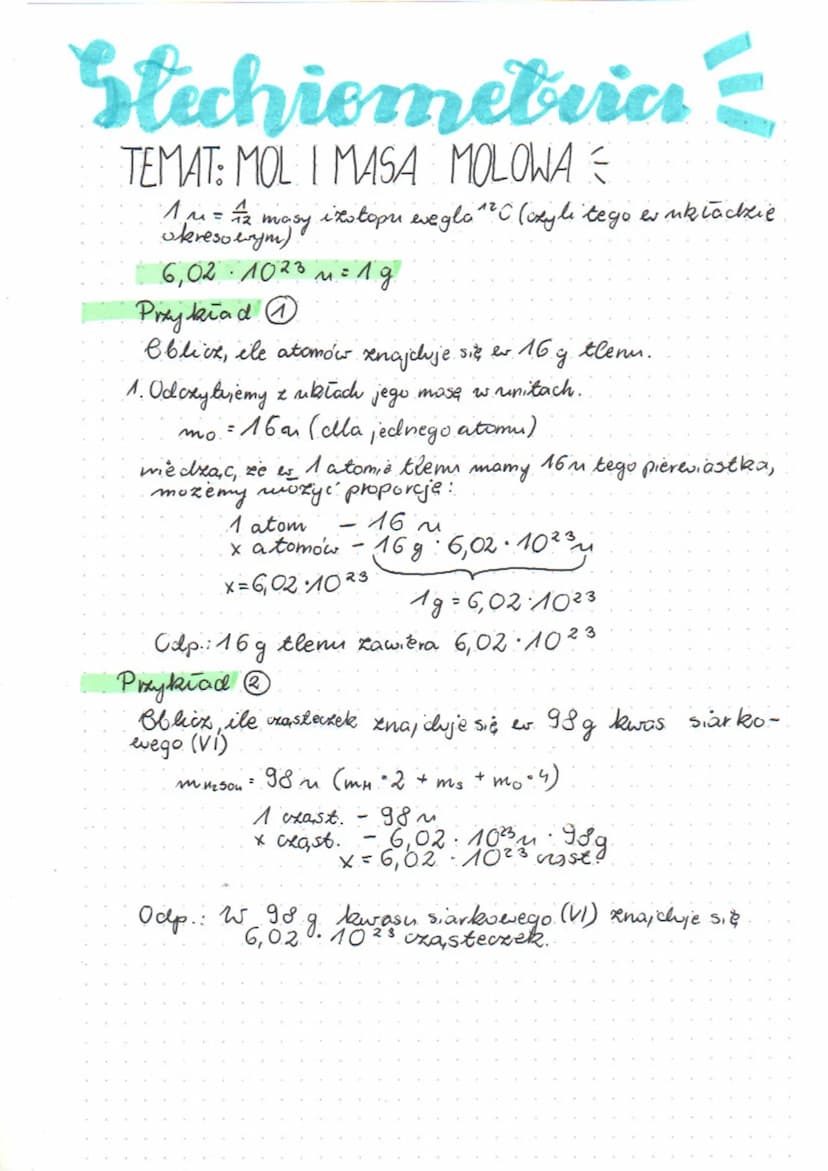 Stechiometria
TEMAT: MOL I MASA MOLOWA
1 u = 1/12 masy izotopu węgla ¹²C (czyli tego w układzie
okresowym)
6,02 · 10²³ u = 1 g
Przykład ①
Oblicz, ile atomów znajduje się w 16 g tlenu.
1. Odczytujemy z układu jego masę w unitach.
mo = 16u (dla jednego atomu)
wiedząc, że w 1 atomie tlenu mamy 16 u tego pierwiastka,
możemy ułożyć proporcję:
1 atom – 16 u
x atomów – 16 g · 6,02 · 10²³ u
x = 6,02 · 10²³
1g = 6,02 · 10²³
Odp.: 16 g tlenu zawiera 6,02 · 10²³
Przykład ②
Oblicz, ile cząsteczek znajduje się w 98 g kwas siarko-
wego (VI)
mH2SO4 = 98 u (mH · 2 + ms + mo · 4)
1 cząst. – 98 u
x cząst. – 6,02 · 10²³ u · 98g
x = 6,02 · 10²³ cząst.
Odp.: W 98 g kwasu siarkowego (VI) znajduje się
6,02 · 10²³ cząsteczek.